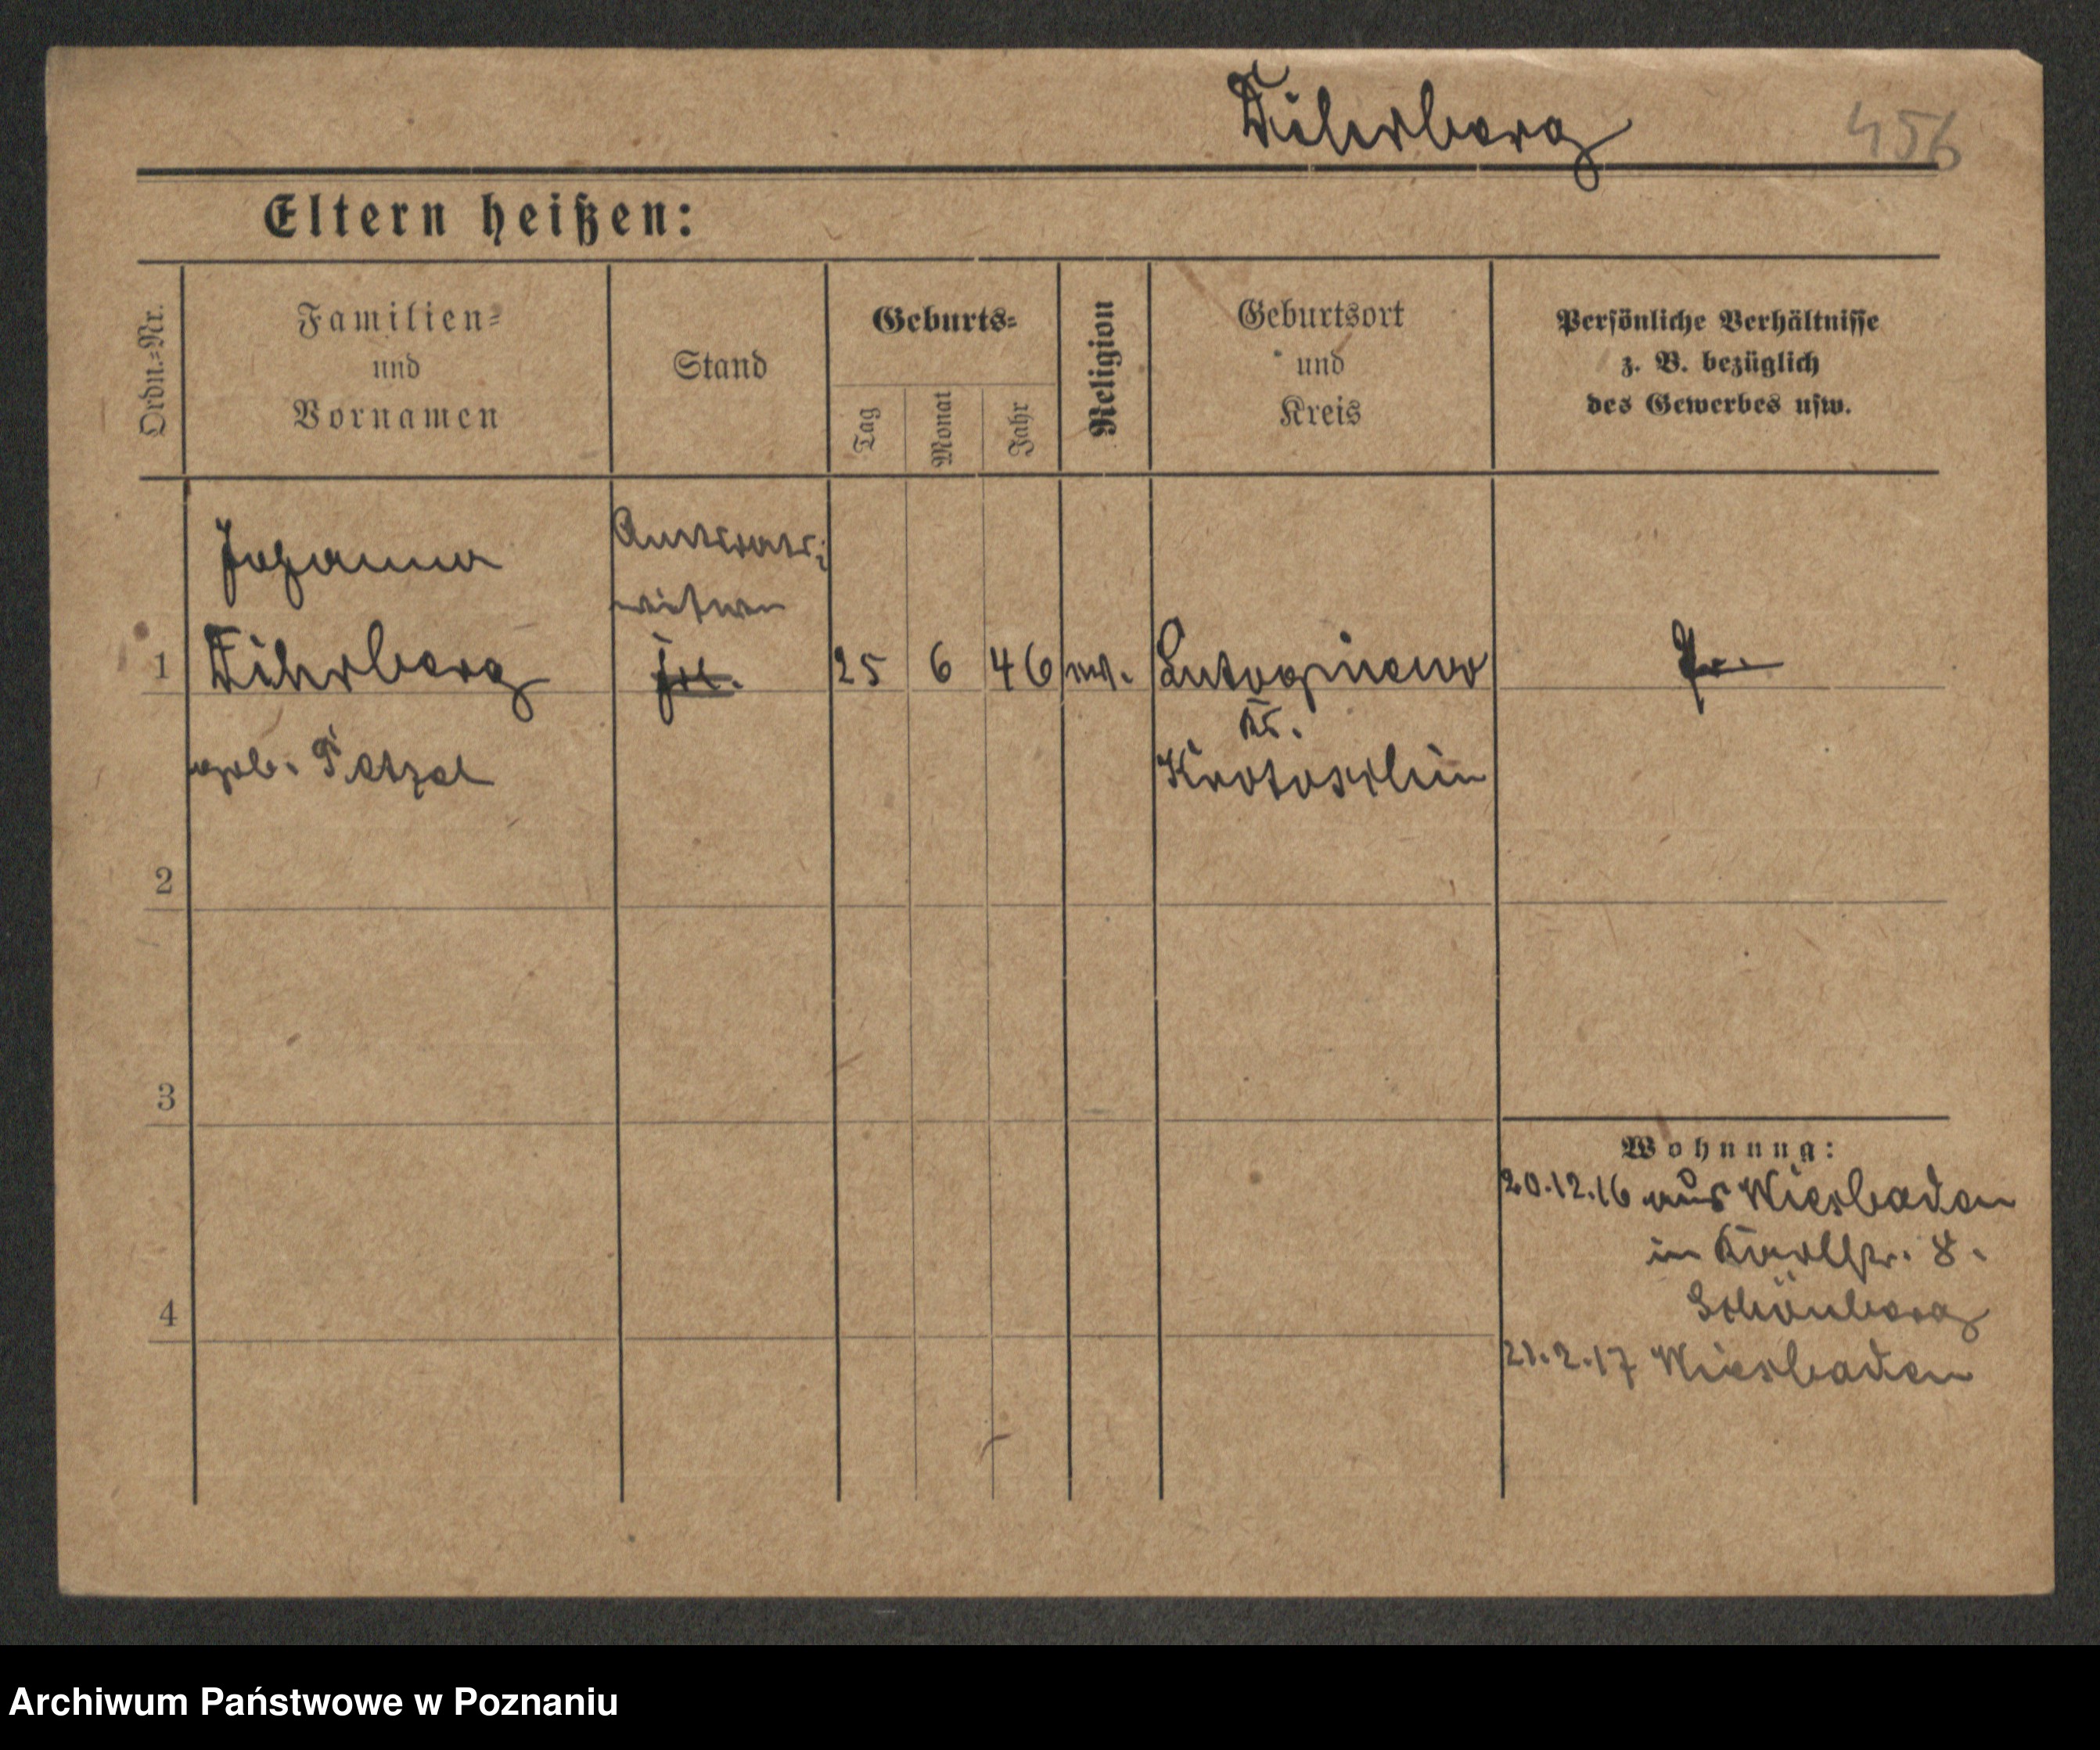 456
Eltern heißen:
Ordn.-Nr.
Familien-
und
Vornamen
Stand
Geburts-
Tag
Monat
Jahr
Religion
Geburtsort
und
Kreis
Persönliche Verhältnisse
z. B. bezüglich
des Gewerbes usw.
Johanna
Amtsrats-
witwe
1
25 6 46 ev. Lutogniewo
Kr.
geb. Petzel
Krotoschin
2
3
4
Wohnung:
20.12.16 aus Wiesbaden
in Karlstr. 8.
Schönberg
21.2.17 Wiesbaden
Archiwum Państwowe w Poznaniu